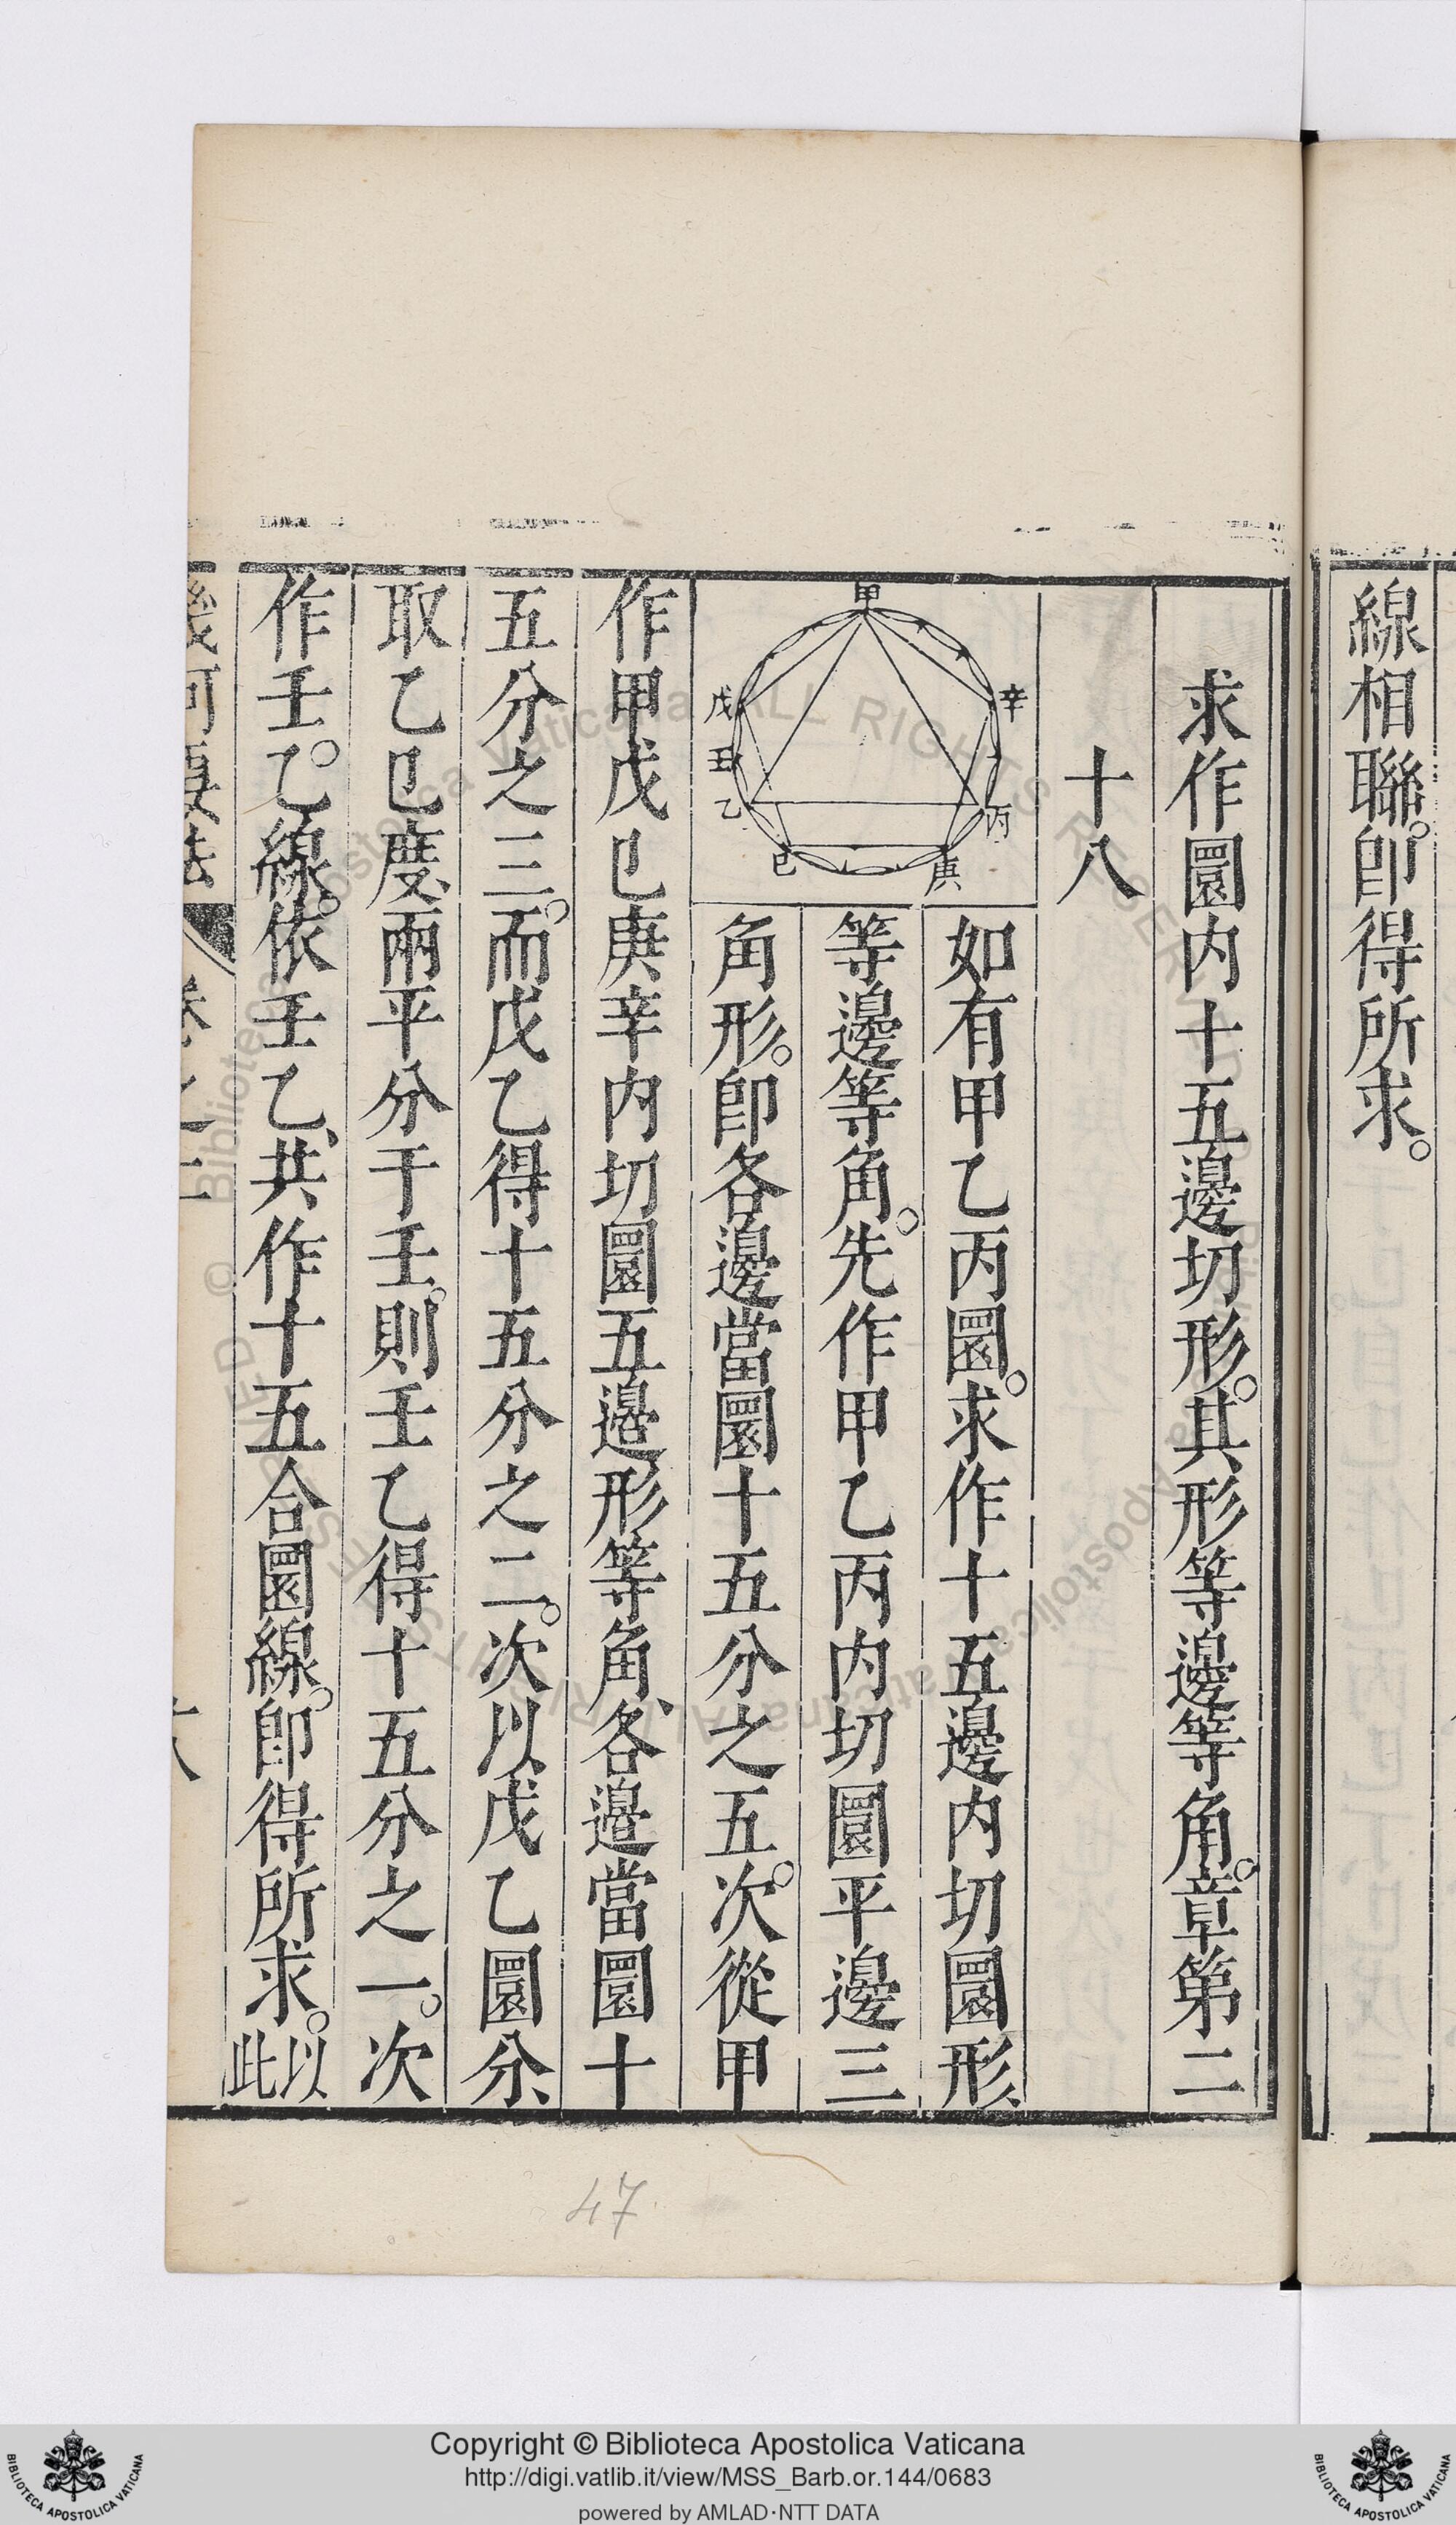 線相聯。卽得所求。
求作圜内十五邊切形。其形等邊等角。章第二
十八
甲
辛
戊
壬
乙
丙
巳
庚
如有甲乙丙圜。求作十五邊内切圜形、
等邊等角。先作甲乙丙内切圜平邊三
角形。卽各邊當圜十五分之五。次從甲
作甲戊巳庚辛内切圜五邊形等角、各邊當圜十
五分之三。而戊乙得十五分之二。次以戊乙圜分、
取乙巳度、兩平分于壬。則壬乙得十五分之一。次
作壬。乙線。依壬乙、共作十五合圜線。卽得所求。以
此
幾何要法
卷之二
十八
47
© Biblioteca Apostolica Vaticana ALL RIGHTS RESERVED
Copyright © Biblioteca Apostolica Vaticana
http://digi.vatlib.it/view/MSS_Barb.or.144/0683
powered by AMLAD·NTT DATA
BIBLIOTECA APOSTOLICA VATICANA
BIBLIOTECA APOSTOLICA VATICANA